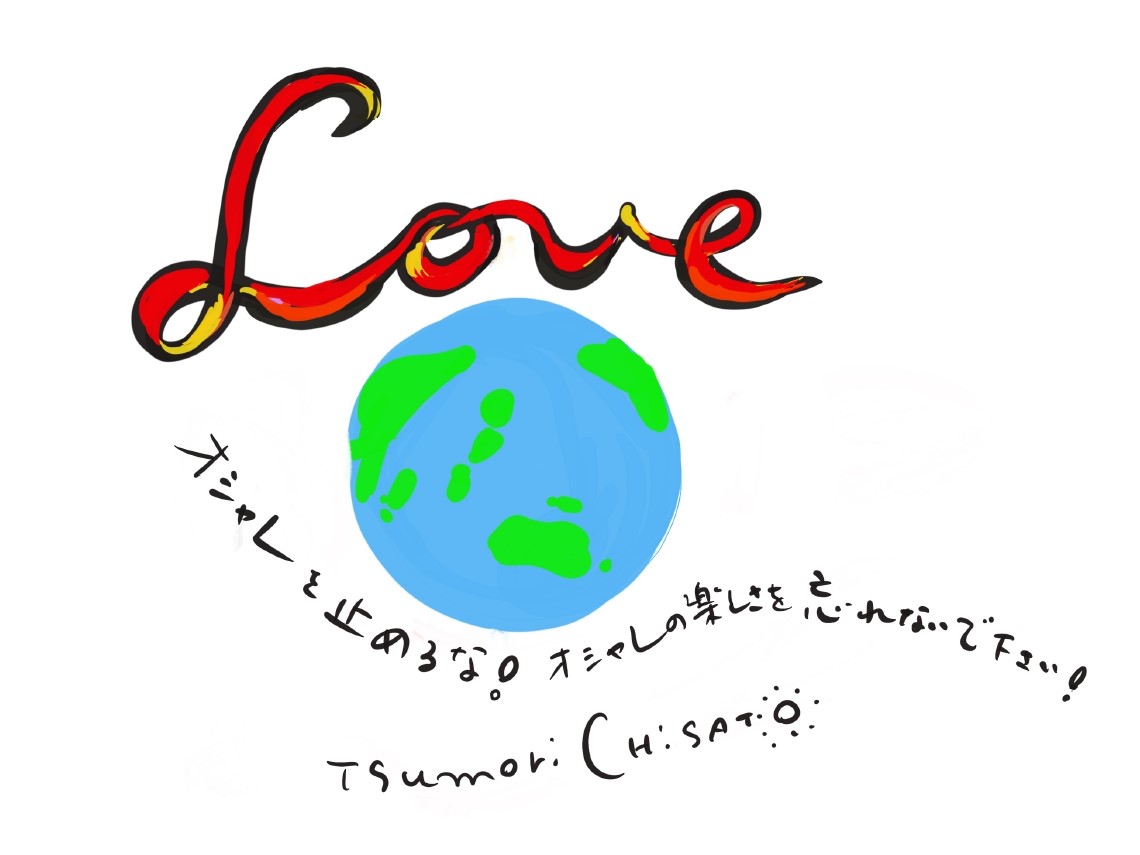 Love
オシャレを止めるな! オシャレの楽しさを忘れないで下さい!
Tsumori CHiSATO